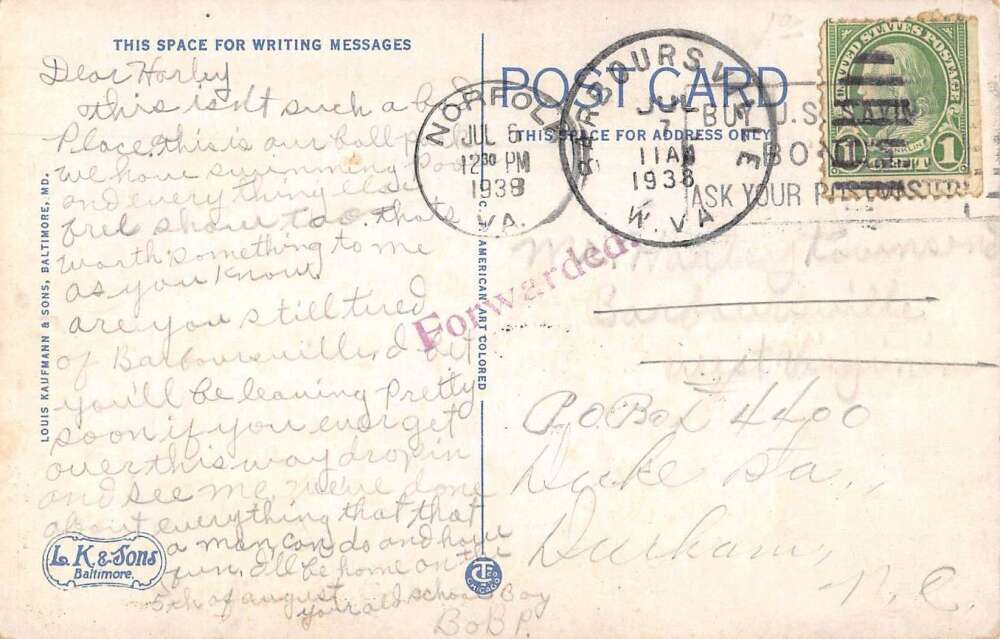 THIS SPACE FOR WRITING MESSAGES
Dear Harley
this isn't such a
Place. this is our ball
we have swimming
and everything else
frel show too. thats
worth something to me
as you know.
are you still tired
of Barboursville, I bet
you'll be leaving Pretty
soon if you ever get
over this way drop in
and see me. we've done
about everything that that
a man can do and have
fun. I'll be home on the
5th of august
your old school Boy
BOB P.
LOUIS KAUFMANN & SONS, BALTIMORE, MD.
L. K & Sons
Baltimore.
AMERICAN ART COLORED
CT CO
CHICAGO
POST CARD
THIS SPACE FOR ADDRESS ONLY
NORFOLK
JUL 6
12 30 PM
1938
VA.
BARBOURSVILLE
JUL
7
11 AM
1938
W. VA
BUY U.S. SAVINGS
BO
ASK YOUR POSTMASTER
UNITED STATES POSTAGE
FRANKLIN
1 CENT 1
Forwarded.
Harley Townsend
Barboursville
West Virginia
P.O. Box 4400
Duke Sta.,
Durham,
N.C.